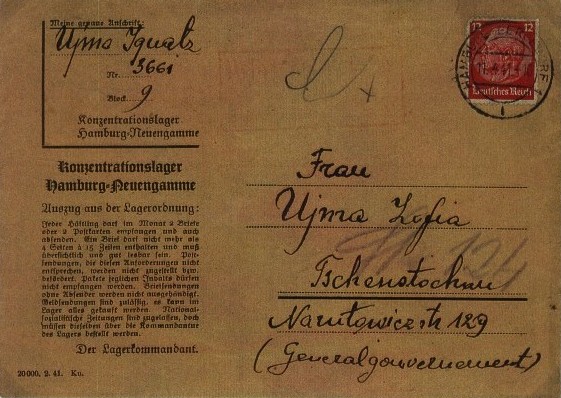 Meine genaue Anschrift:
Ujma Ignatz
Nr. 3661
Block 9
Konzentrationslager
Hamburg-Neuengamme
Konzentrationslager
Hamburg-Neuengamme
Auszug aus der Lagerordnung:
Jeder Häftling darf im Monat 2 Briefe
oder 2 Postkarten empfangen und auch
absenden. Ein Brief darf nicht mehr als
4 Seiten à 15 Zeilen enthalten und muß
übersichtlich und gut lesbar sein. Post-
sendungen, die diesen Anforderungen nicht
entsprechen, werden nicht zugestellt bzw.
befördert. Pakete jeglichen Inhalts dürfen
nicht empfangen werden. Briefsendungen
ohne Absender werden nicht ausgehändigt.
Geldsendungen sind zulässig, es kann im
Lager alles gekauft werden. National-
sozialistische Zeitungen sind zugelassen, doch
müssen dieselben über die Kommandantur
des Lagers bestellt werden.
Der Lagerkommandant.
20000. 2. 41. Ku.
12 12
Deutsches Reich
HAMBURG
1
Frau
Ujma Zofia
Tschenstochau
Narutowiczstr 129
(Generalgouvernement)